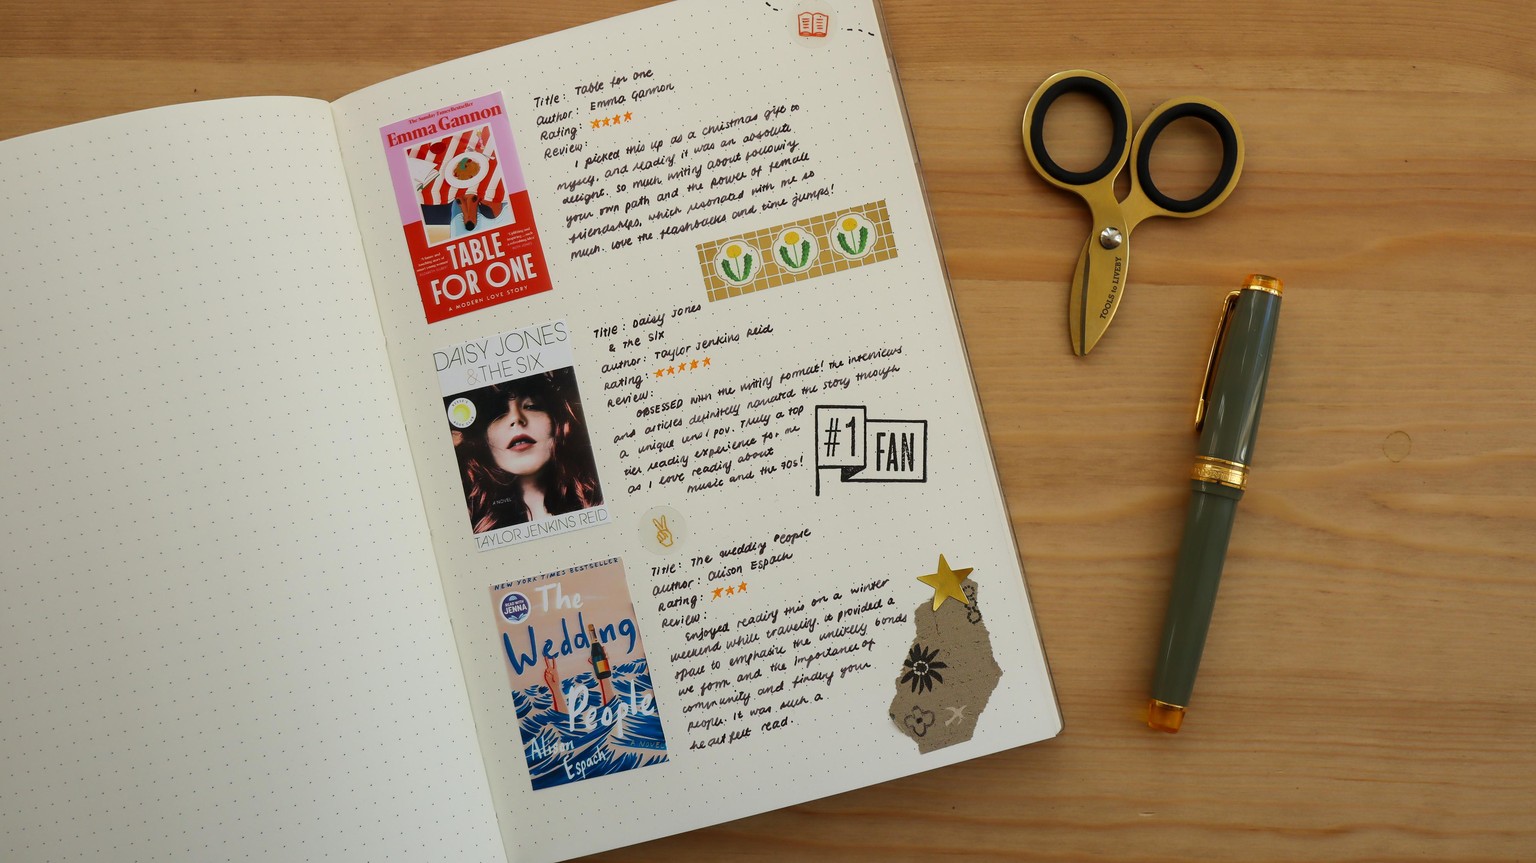 The Sunday Times Bestseller
Emma Gannon
TABLE
FOR ONE
A MODERN LOVE STORY
Title: Table for one
Author: Emma Gannon
Rating: ★★★★
Review:
I picked this up as a christmas gift to
myself, and reading it was an absolute
delight. so much writing about following
your own path and the power of female
friendships, which resonated with me so
much. Love the flashbacks and time jumps!
DAISY JONES
& THE SIX
A NOVEL
TAYLOR JENKINS REID
Title: Daisy Jones
& The Six
Author: Taylor Jenkins Reid
Rating: ★★★★★
Review:
OBSESSED with the writing format! The interviews
and articles definitely narrated the story through
a unique lens/pov. Truly a top
tier reading experience for me
as I love reading about
music and the 70s!
#1 FAN
NEW YORK TIMES BESTSELLER
READ WITH
JENNA
The
Wedding
People
A NOVEL
Alison
Espach
Title: The Wedding People
Author: Alison Espach
Rating: ★★★
Review:
Enjoyed reading this on a winter
weekend while traveling. It provided a
space to emphasize the unlikely bonds
we form and the importance of
community and finding your
people. It was such a
heartfelt read.
TOOLS to LIVEBY